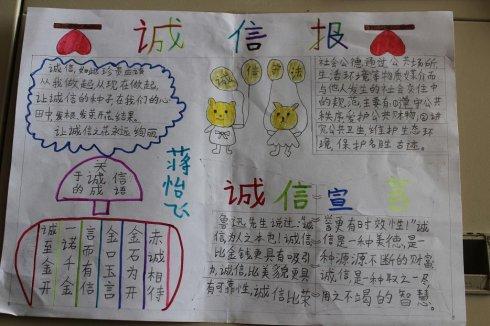 诚信报
诚信,如此珍贵应该
从我做起从现在做起,
让诚信的种子在我们的心
田中发根、发芽、开花结果。
让诚信之花永远绚丽
守法
社会公德通过公共场所
生活环境等物质媒介而
与他人发生的社会交往中
的规范,主要有:遵守公共
秩序爱护公共财物,回讲
究公共卫生维护生态环
境,保护名胜古迹。
关
于诚信
的成语
蒋怡飞
诚至金开
诸千金
言而有信
金口玉言
金石为开
赤诚相待
诚信宣言
鲁迅先生说过:“诚
信为人之本也!诚信
比金钱更具有吸引
力,诚信比美貌更具
有可靠性,诚信比荣
誉更有时效性!”诚
信是一种美德,是
一种源源不断的财富
诚信是一种取之不尽
用之不竭的智慧。